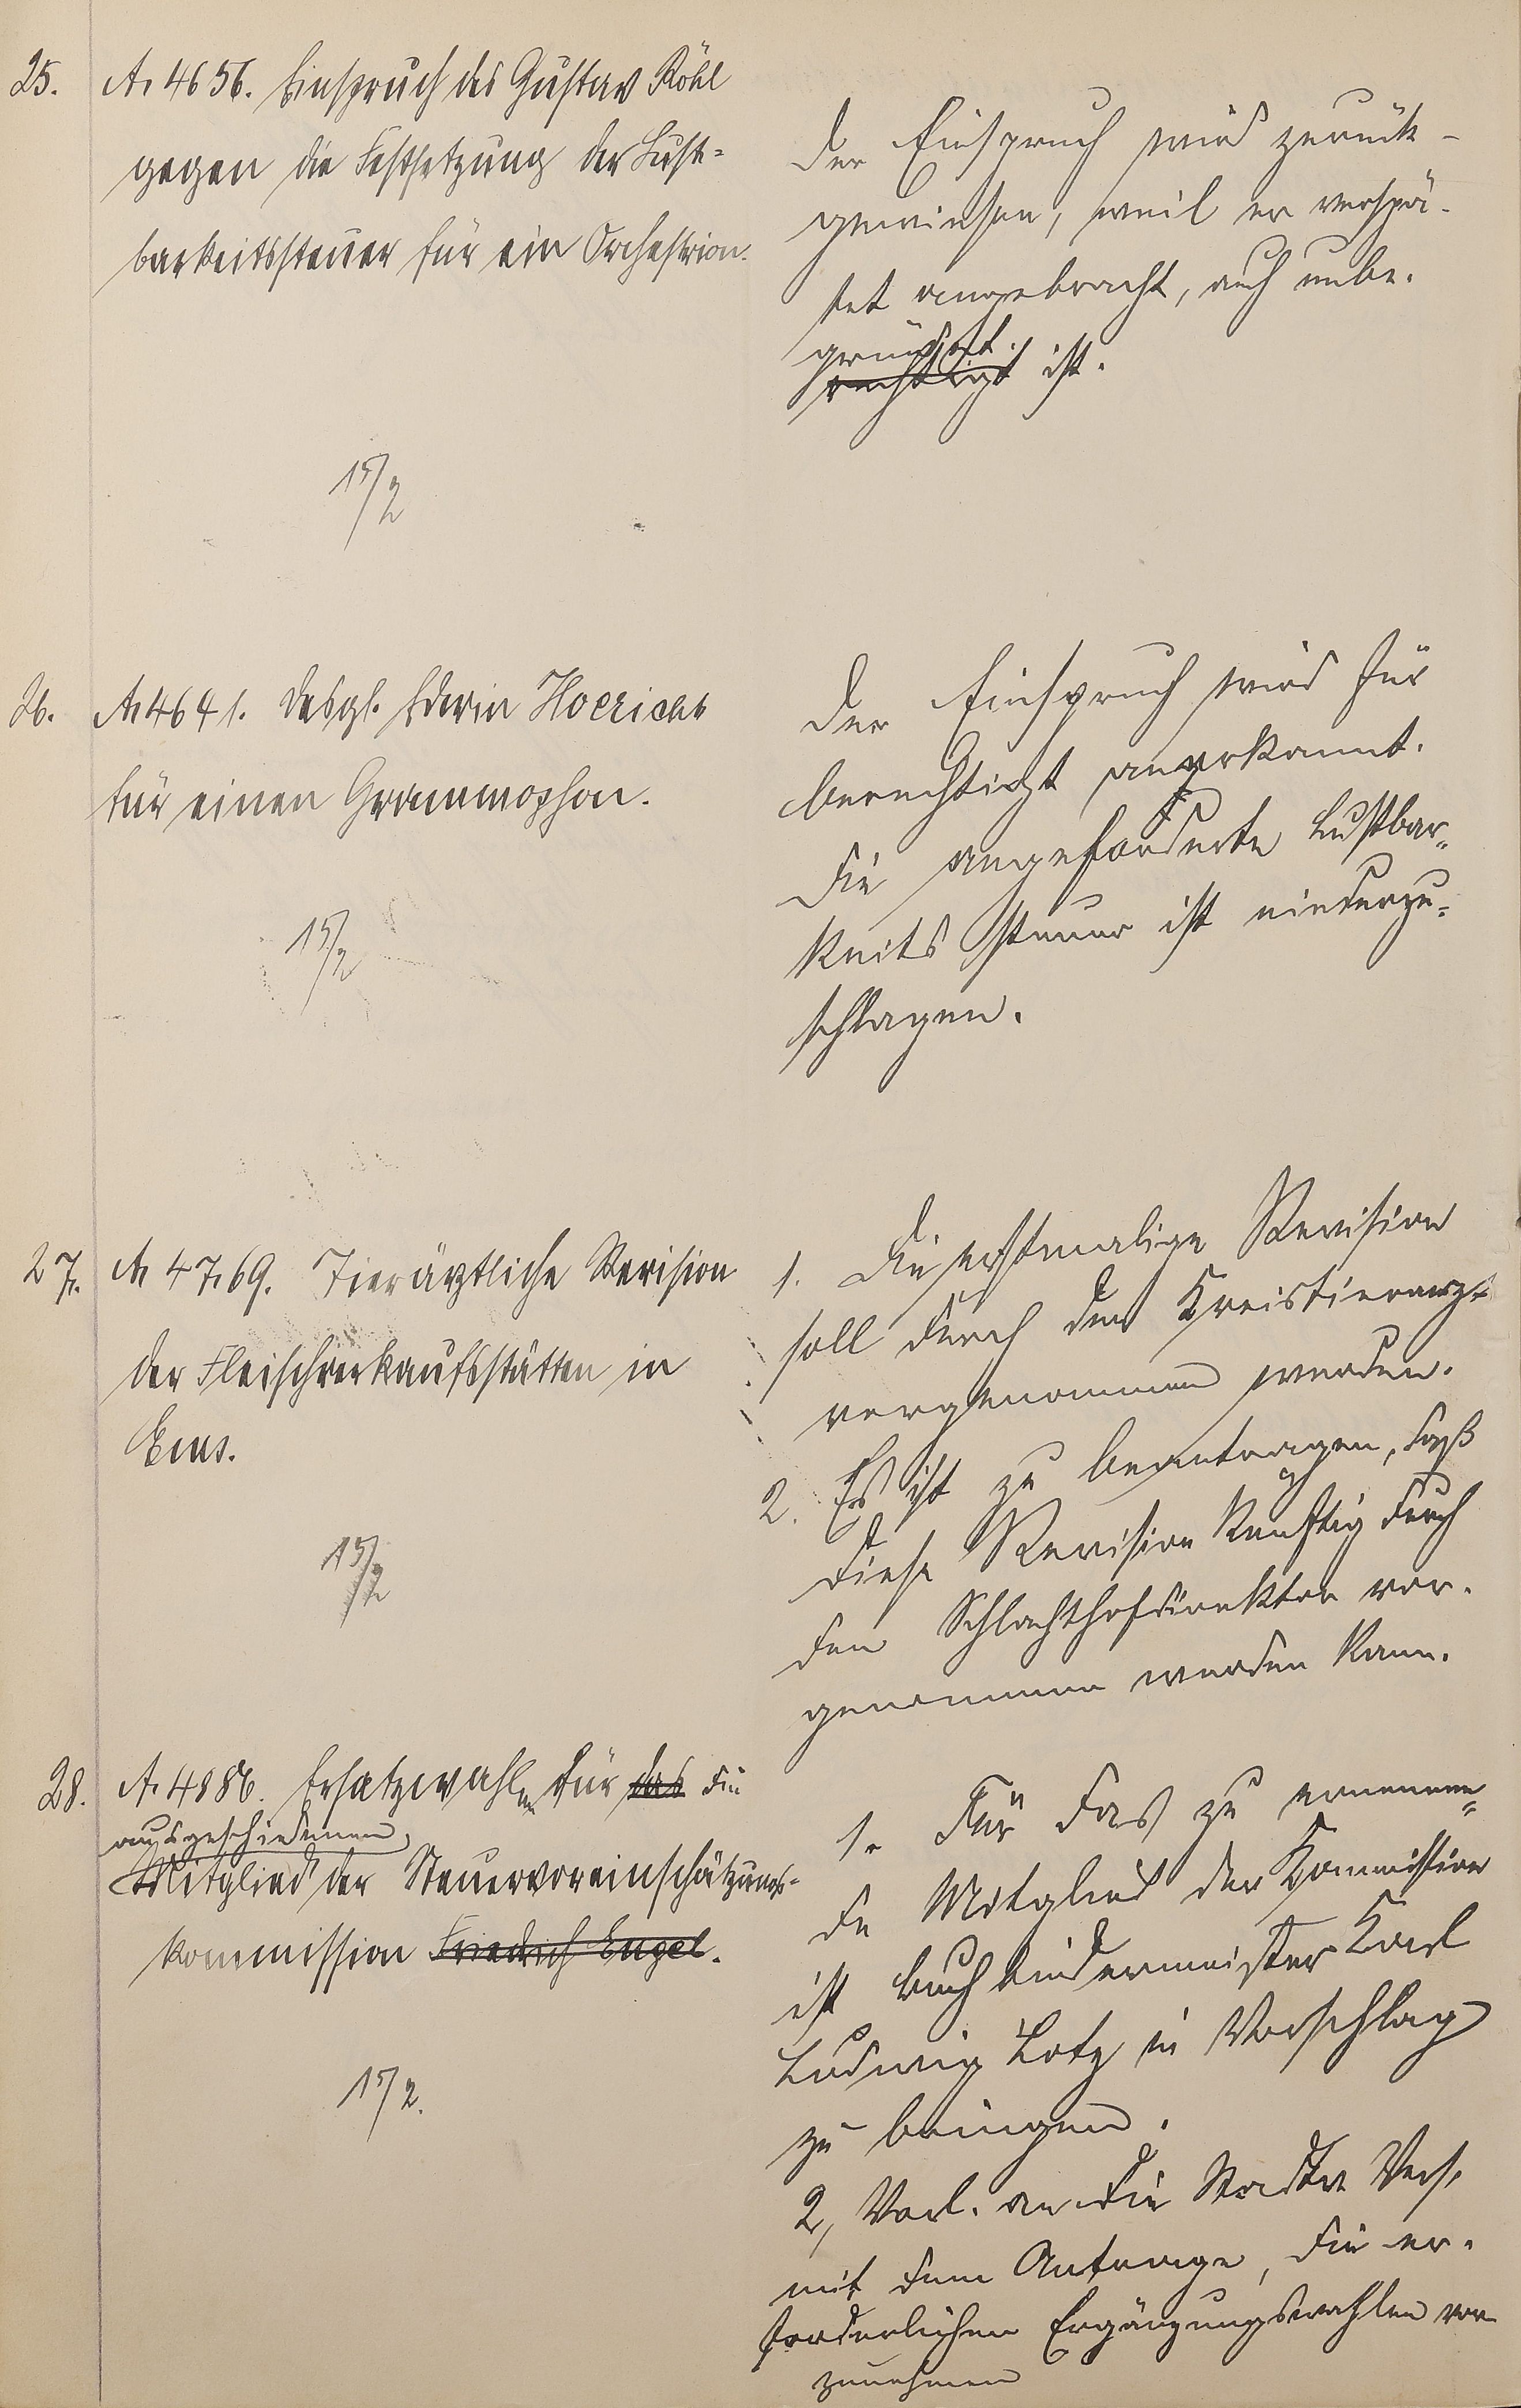 25. A. 4656. Einspruch des Gustav Röhl
gegen die Festsetzung der Lust-
barkeitssteuer für ein Orchestrion.
15/2
Der Einspruch wird zurück-
gewiesen, weil er verspä-
tet angebracht, auch unbe-
gründet.
rechtigt ist.
26. A. 4641. Desgl. Edwin Hoericht
für einen Grammophon.
15/2
Der Einspruch wird für
berechtigt anerkannt.
Die angeforderte Lustbar-
keits steuer ist niederzu-
schlagen.
27. A. 4769. Tierärztliche Revision
der Fleischverkaufsstätten in
Ems.
15/2
1. Die erstmalige Revision
soll durch den Kreistierarzt
vorgenommen werden.
2. Es ist zu beantragen, daß
diese Revision künftig durch
den Schlachthofdirektor vor-
genommen werden kann.
28. A. 4886. Ersatzwahlen für das die
ausgeschiedenen
Mitglied der Steuervoreinschätzungs-
kommission Friedrich Engel.
15/2.
1. Für das zu ernennen-
de Mitglied der Kommission
ist Buchbindermeister Karl
Ludwig Lotz in Vorschlag
zu bringen.
2, Vorl. an die Stadtv. Vers.
mit dem Antrage, die er-
forderlichen Ergänzungswahlen vor
zunehmen